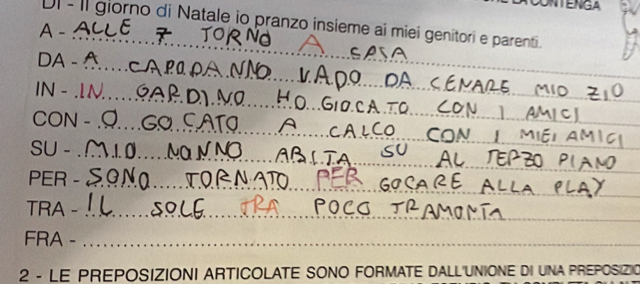 CONTENGA
DI - Il giorno di Natale io pranzo insieme ai miei genitori e parenti.
A - ALLE 7 TORNO A CASA
DA - A CAPODANNO VADO DA CENARE MIO ZIO
IN - IN GARDINO HO GIOCATO CON I AMICI
CON - O GOCATO A CALCO CON I MIEI AMICI
SU - MIO NONNO ABITA SU AL TERZO PIANO
PER - SONO TORNATO PER GOCARE ALLA PLAY
TRA - IL SOLE TRA POCO TRAMONTA
FRA -
2 - LE PREPOSIZIONI ARTICOLATE SONO FORMATE DALL'UNIONE DI UNA